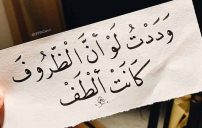 وَدَدْتُ لَوْ أَنَّ ٱلظُّرُوفَ
كَانَتْ أَلْطَفْ